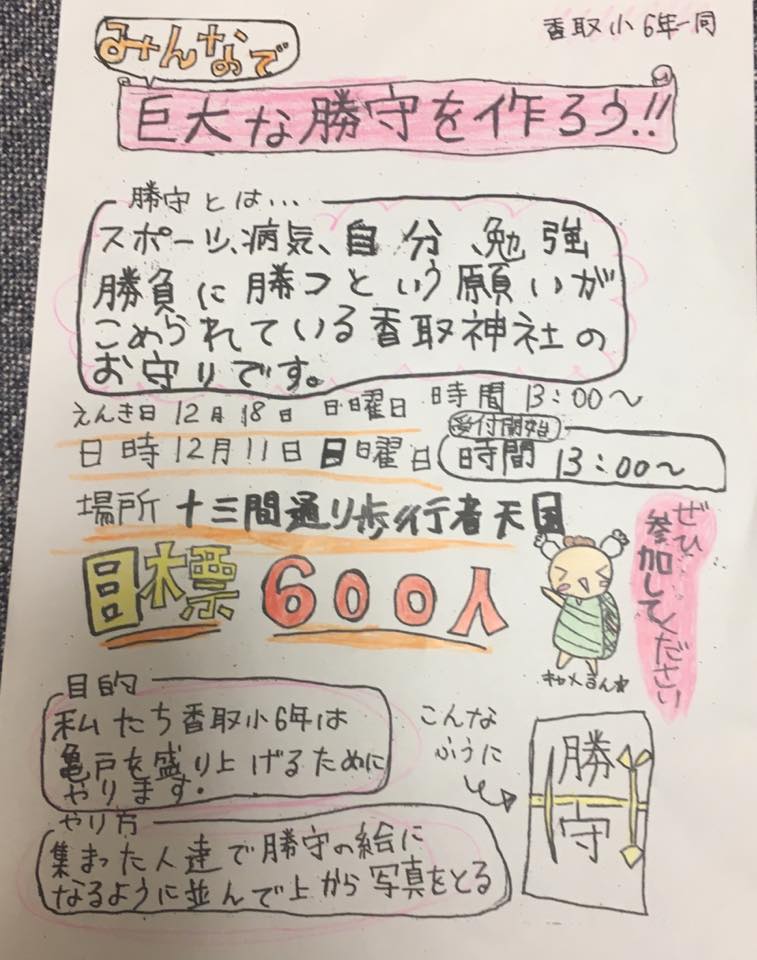 香取小6年一同
みんなで
巨大な勝守を作ろう!!
勝守とは...
スポーツ、病気、自分、勉強
勝負に勝つという願いが
こめられている香取神社の
お守りです。
えんき日 12月18日 日曜日 時間 13:00〜
日時 12月11日 日曜日
受付開始
時間 13:00〜
場所 十三間通り歩行者天国
目標 600人
ぜひ
参加してください
目的
私たち香取小6年は
亀戸を盛り上げるために
やります.
こんな
ふうに
勝
守
やり方
集まった人達で勝守の絵に
なるように並んで上から写真をとる